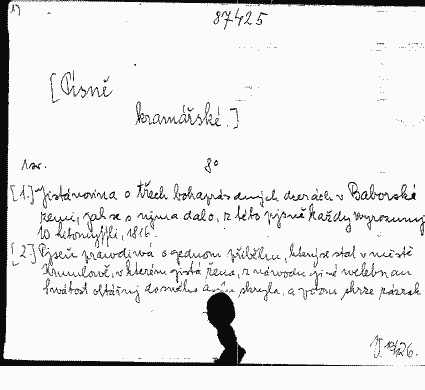 87425
[Písně
kramářské.]
1 sv. 8°
[1.] Jistá novina o třech bohaprásdných dcerách v Baborské
zemi, jak se s nima dalo, z této pjsně každý wyrozumj
W Litomyssli, 1816.
[2.] Pjseň prawdiwá o gednom přjběhu, který se stal v městě
Krumlowě, v kterém gistá žena, z návodu giné welebnau
Swátost oltářnj do skryla, a potom skrze zázrak